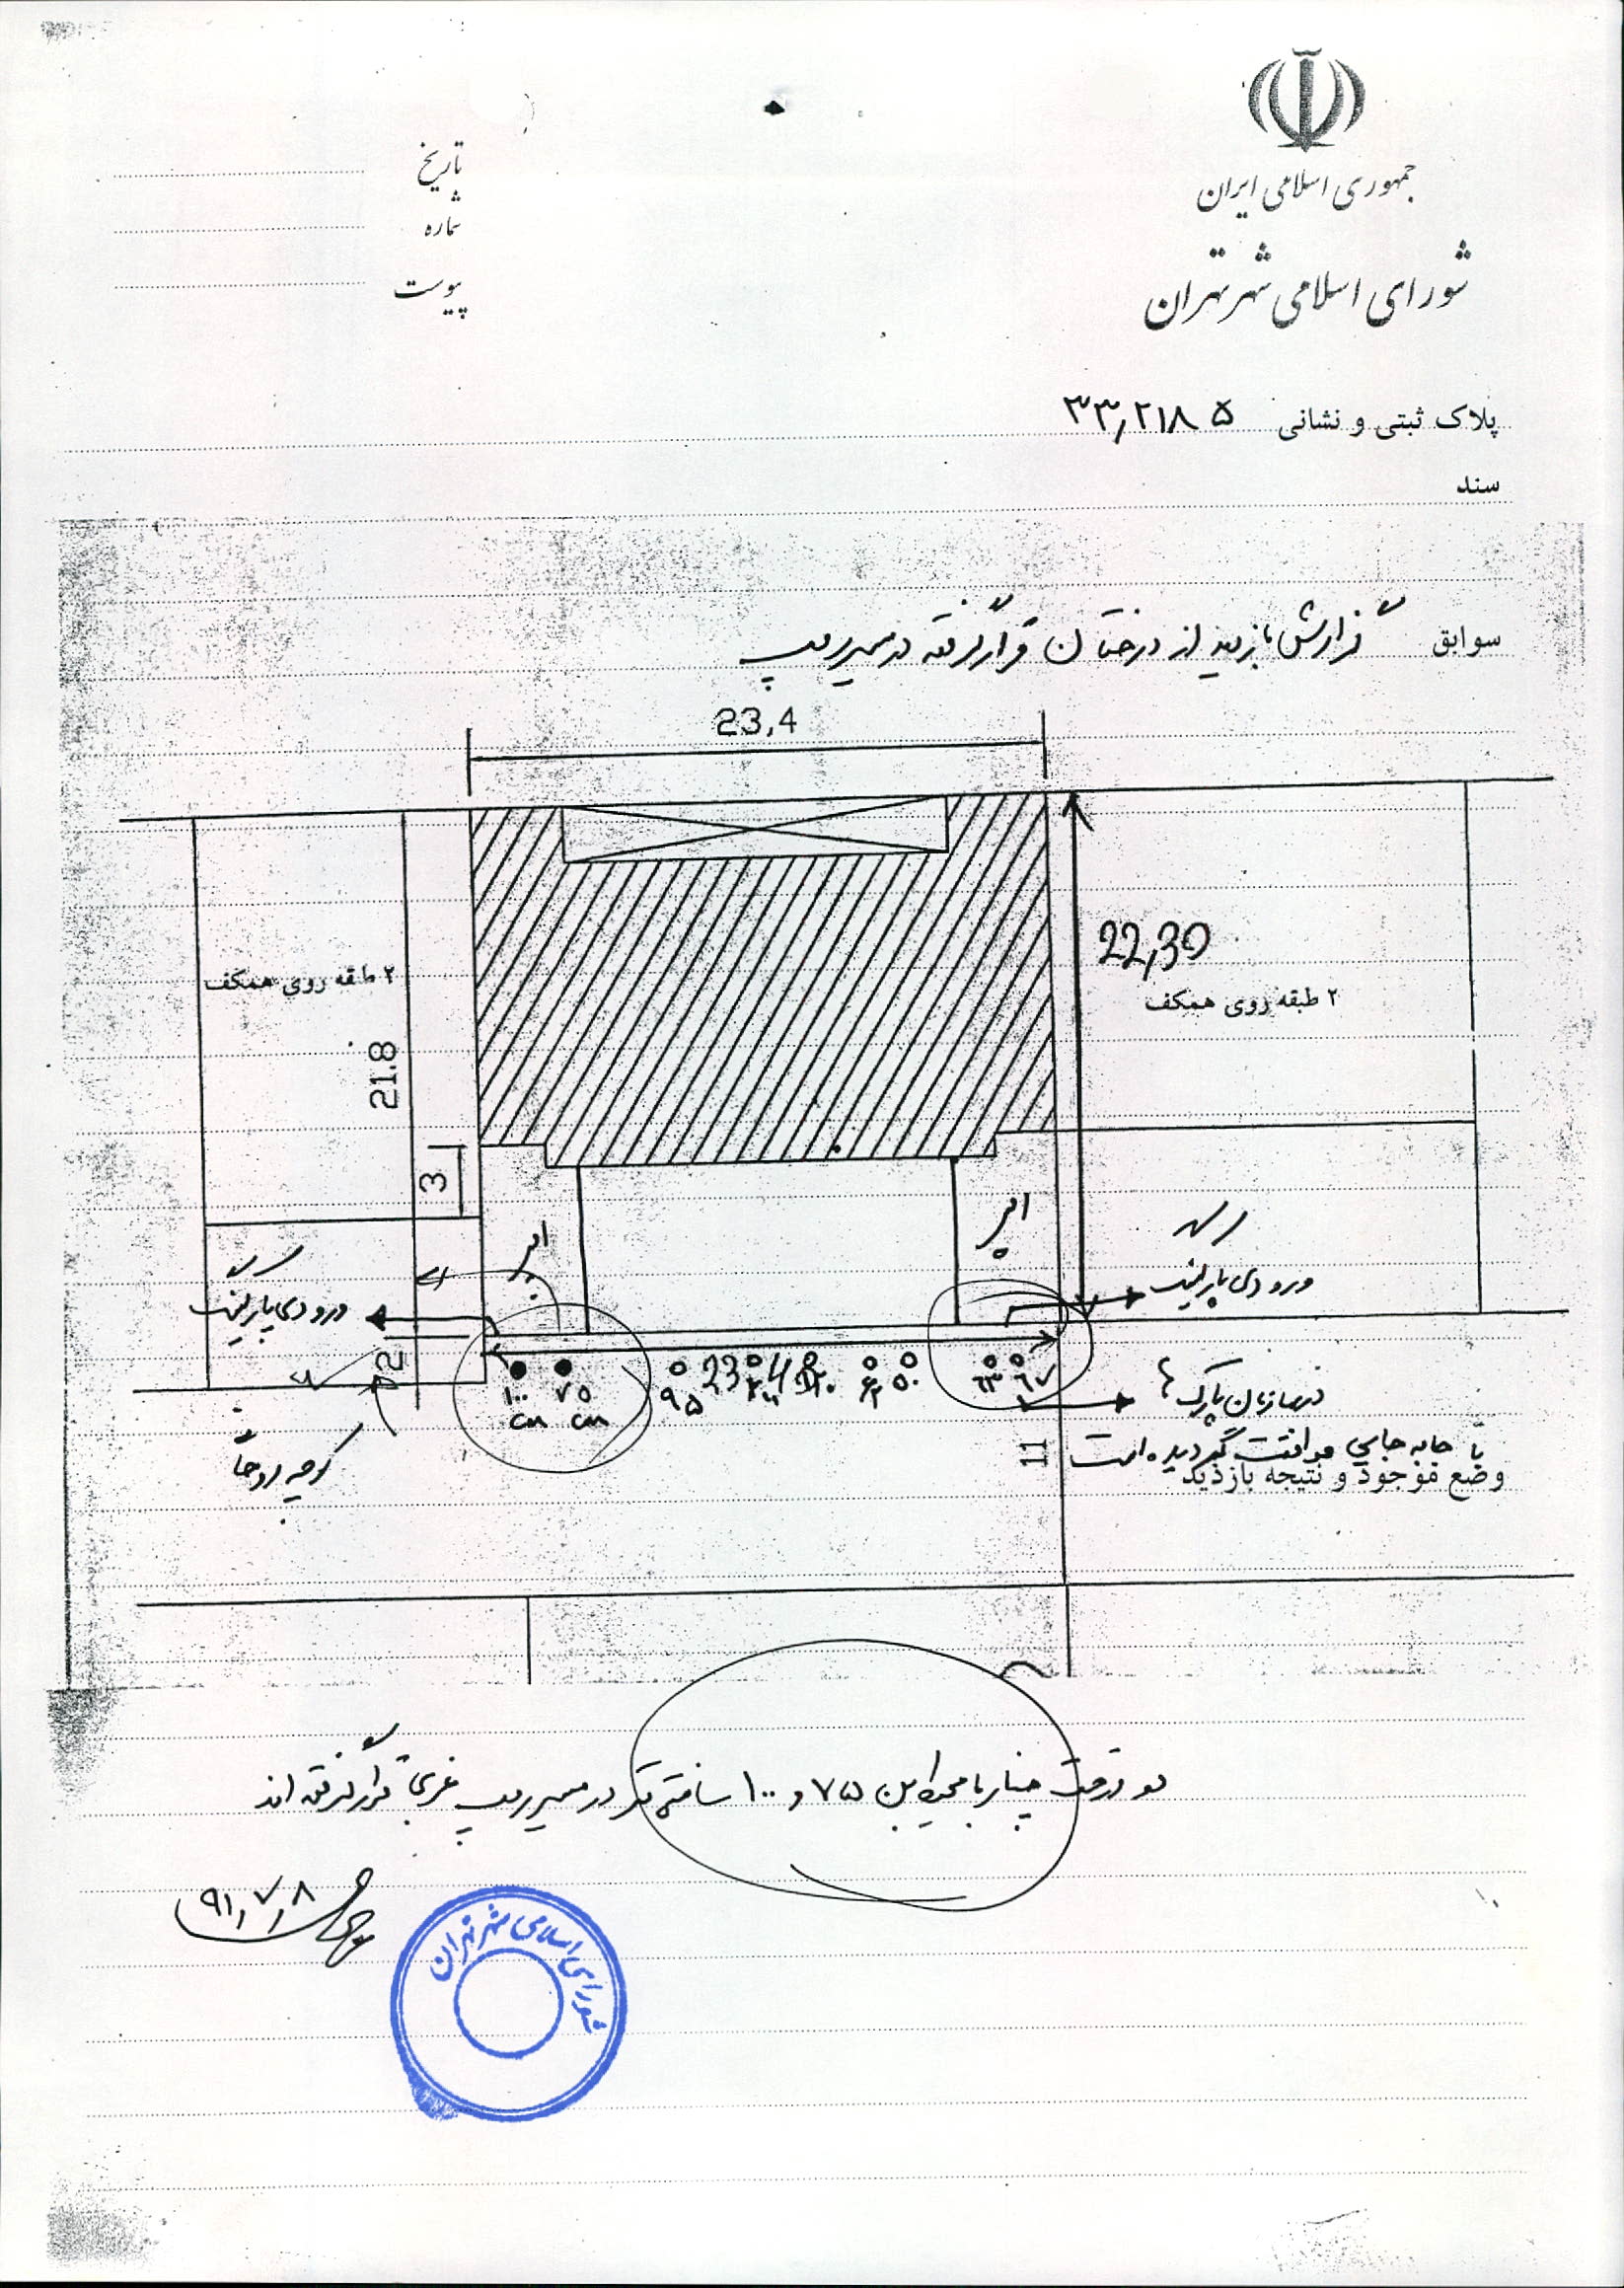 جمهوری اسلامی ایران
شورای اسلامی شهر تهران
تاریخ
شماره
پیوست
پلاک ثبتی و نشانی ۳۳,۲۱۸۵
سند
سوابق گزارش بازدید از درختان قرار گرفته در مسیر رمپ
23,4
22,30
۲ طبقه روی همکف
۲ طبقه روی همکف
21.8
3
رمپ
رمپ
ورودی پارکینگ
ورودی پارکینگ
2
23,4
۱۰۰ cm
۷۵ cm
۹۵
۶۲
۵۰
۶۳
۶۷
در سازمان پارک ها
با جابه جایی موافقت گردیده است
11
وضع موجود و نتیجه بازدید
دو درخت چنار با محیط بن ۷۵ و ۱۰۰ سانتی متر در مسیر رمپ غربی قرار گرفته اند
۹۱,۷,۸
شورای اسلامی شهر تهران